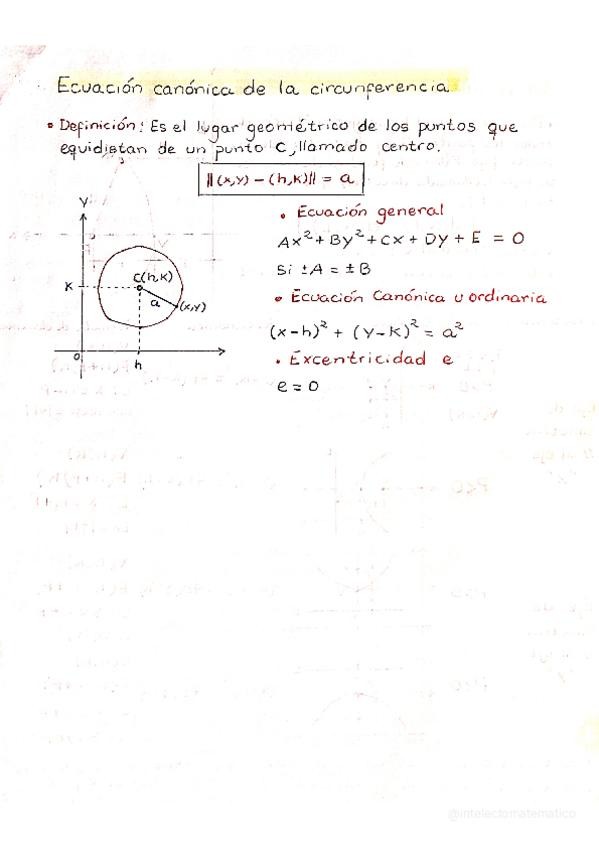 Ecuación canónica de la circunferencia
• Definición: Es el lugar geométrico de los puntos que
equidistan de un punto C, llamado centro.
||(x,y) - (h,k)|| = a
• Ecuación general
Ax² + By² + Cx + Dy + E = 0
Si ±A = ±B
• Ecuación Canónica u ordinaria
(x-h)² + (y-k)² = a²
• Excentricidad e
e = 0
y
C(h,k)
k
a
(x,y)
0
h
@intelectomatematico